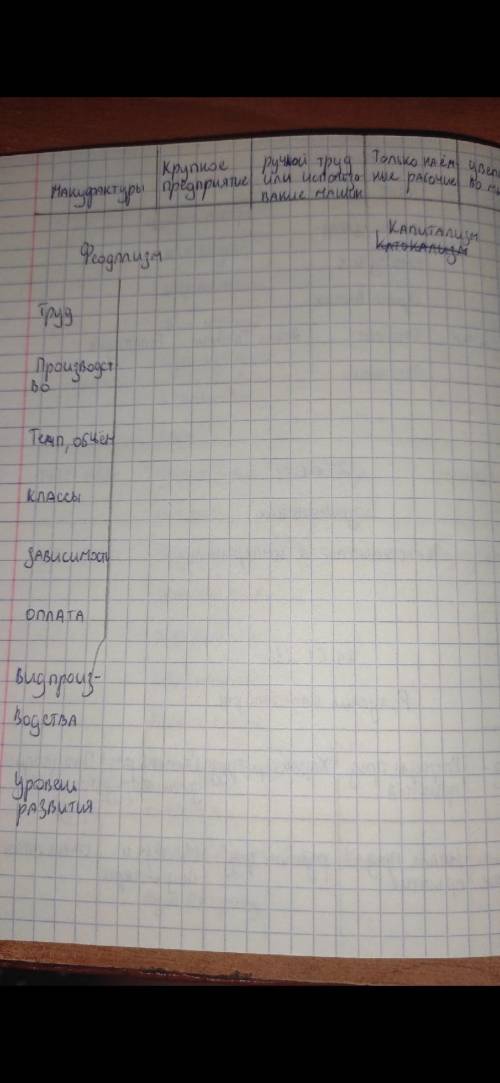 Мануфактуры
Крупное
предприятие
ручной труд
или использо
вание машин
Только наём-
ные рабочие
Феодализм
Капитализм
Труд
Производст
во
Темп, объём
классы
зависимость
оплата
Вид произ-
водства
Уровень
развития